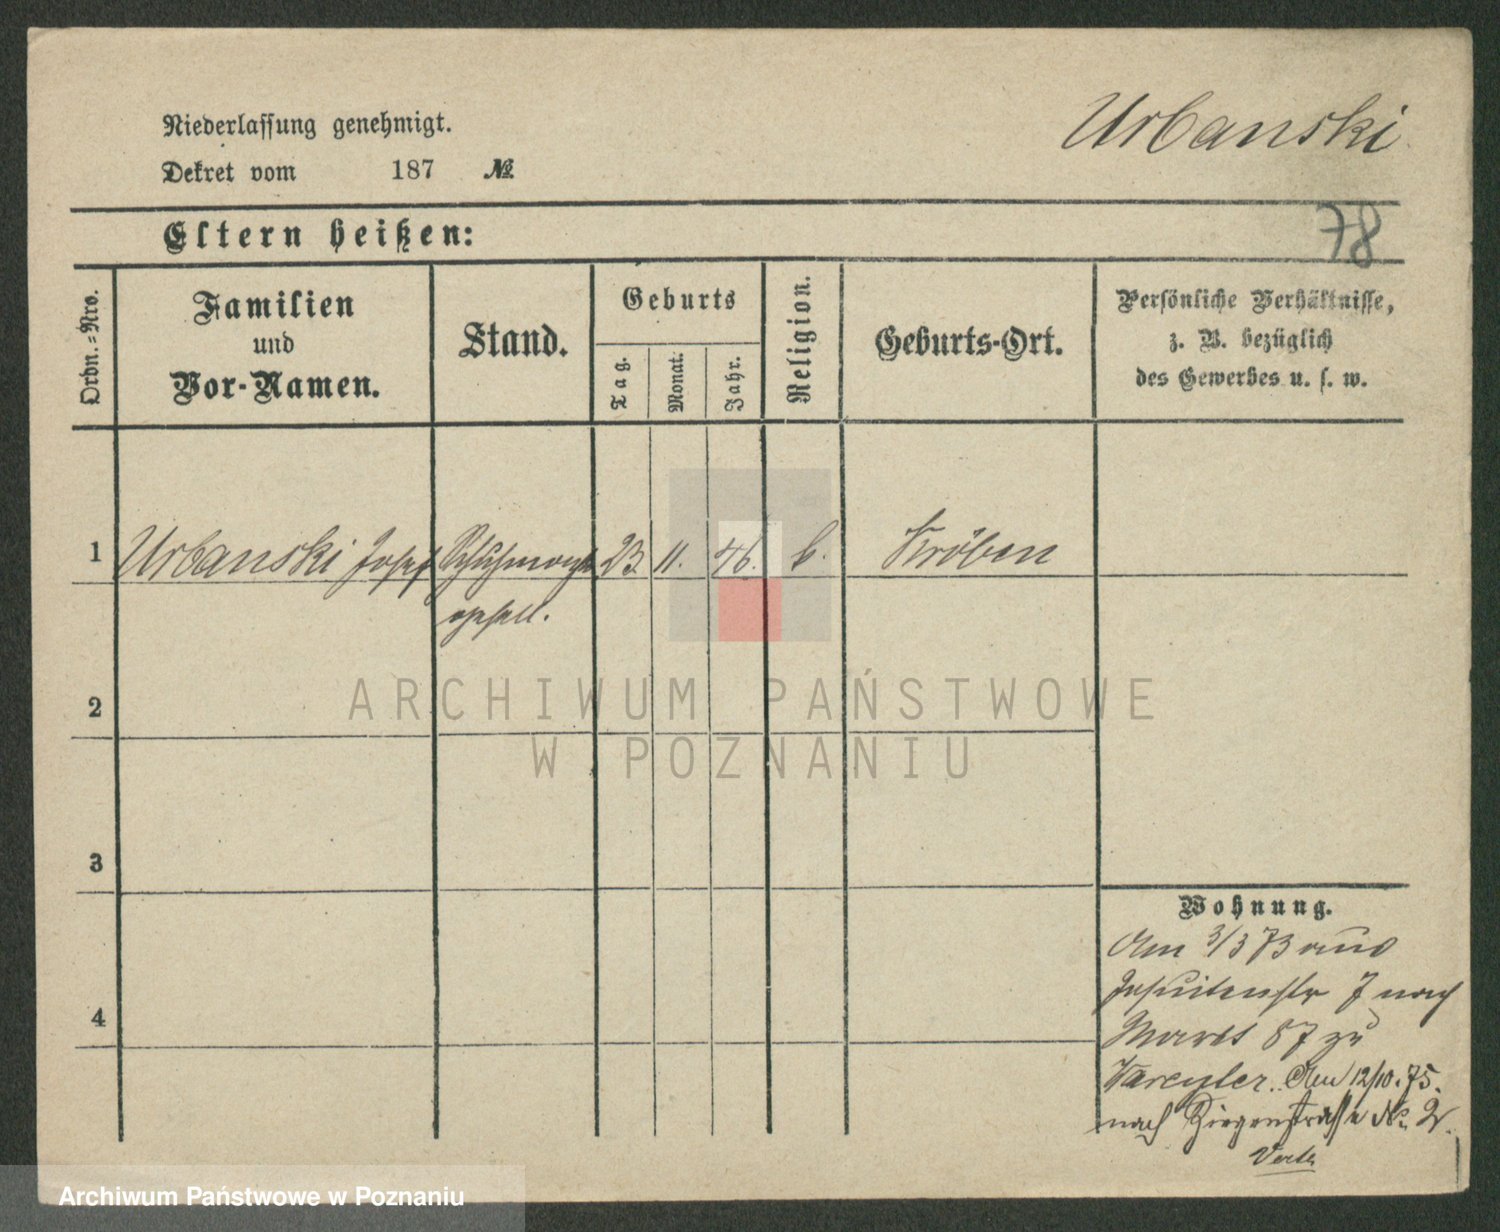 Niederlassung genehmigt.
Dekret vom 187 №
Urbanski
78
Eltern heißen:
Ordn.=Nro.
Familien
und
Vor-Namen.
Stand.
Geburts
Tag.
Monat.
Jahr.
Religion.
Geburts-Ort.
Persönliche Verhältnisse,
z. B. bezüglich
des Gewerbes u. s. w.
1 Urbanski Josef Schuhmach 23 11. 46. k. Kröben
gesell.
ARCHIWUM PAŃSTWOWE
W POZNANIU
2
3
4
Wohnung.
Am 3/3 73 aus
Jesuitenstr 7 nach
Markt 87 zu
Am 12/10. 75.
nach Ziegenstrasse No. 2.
Archiwum Państwowe w Poznaniu